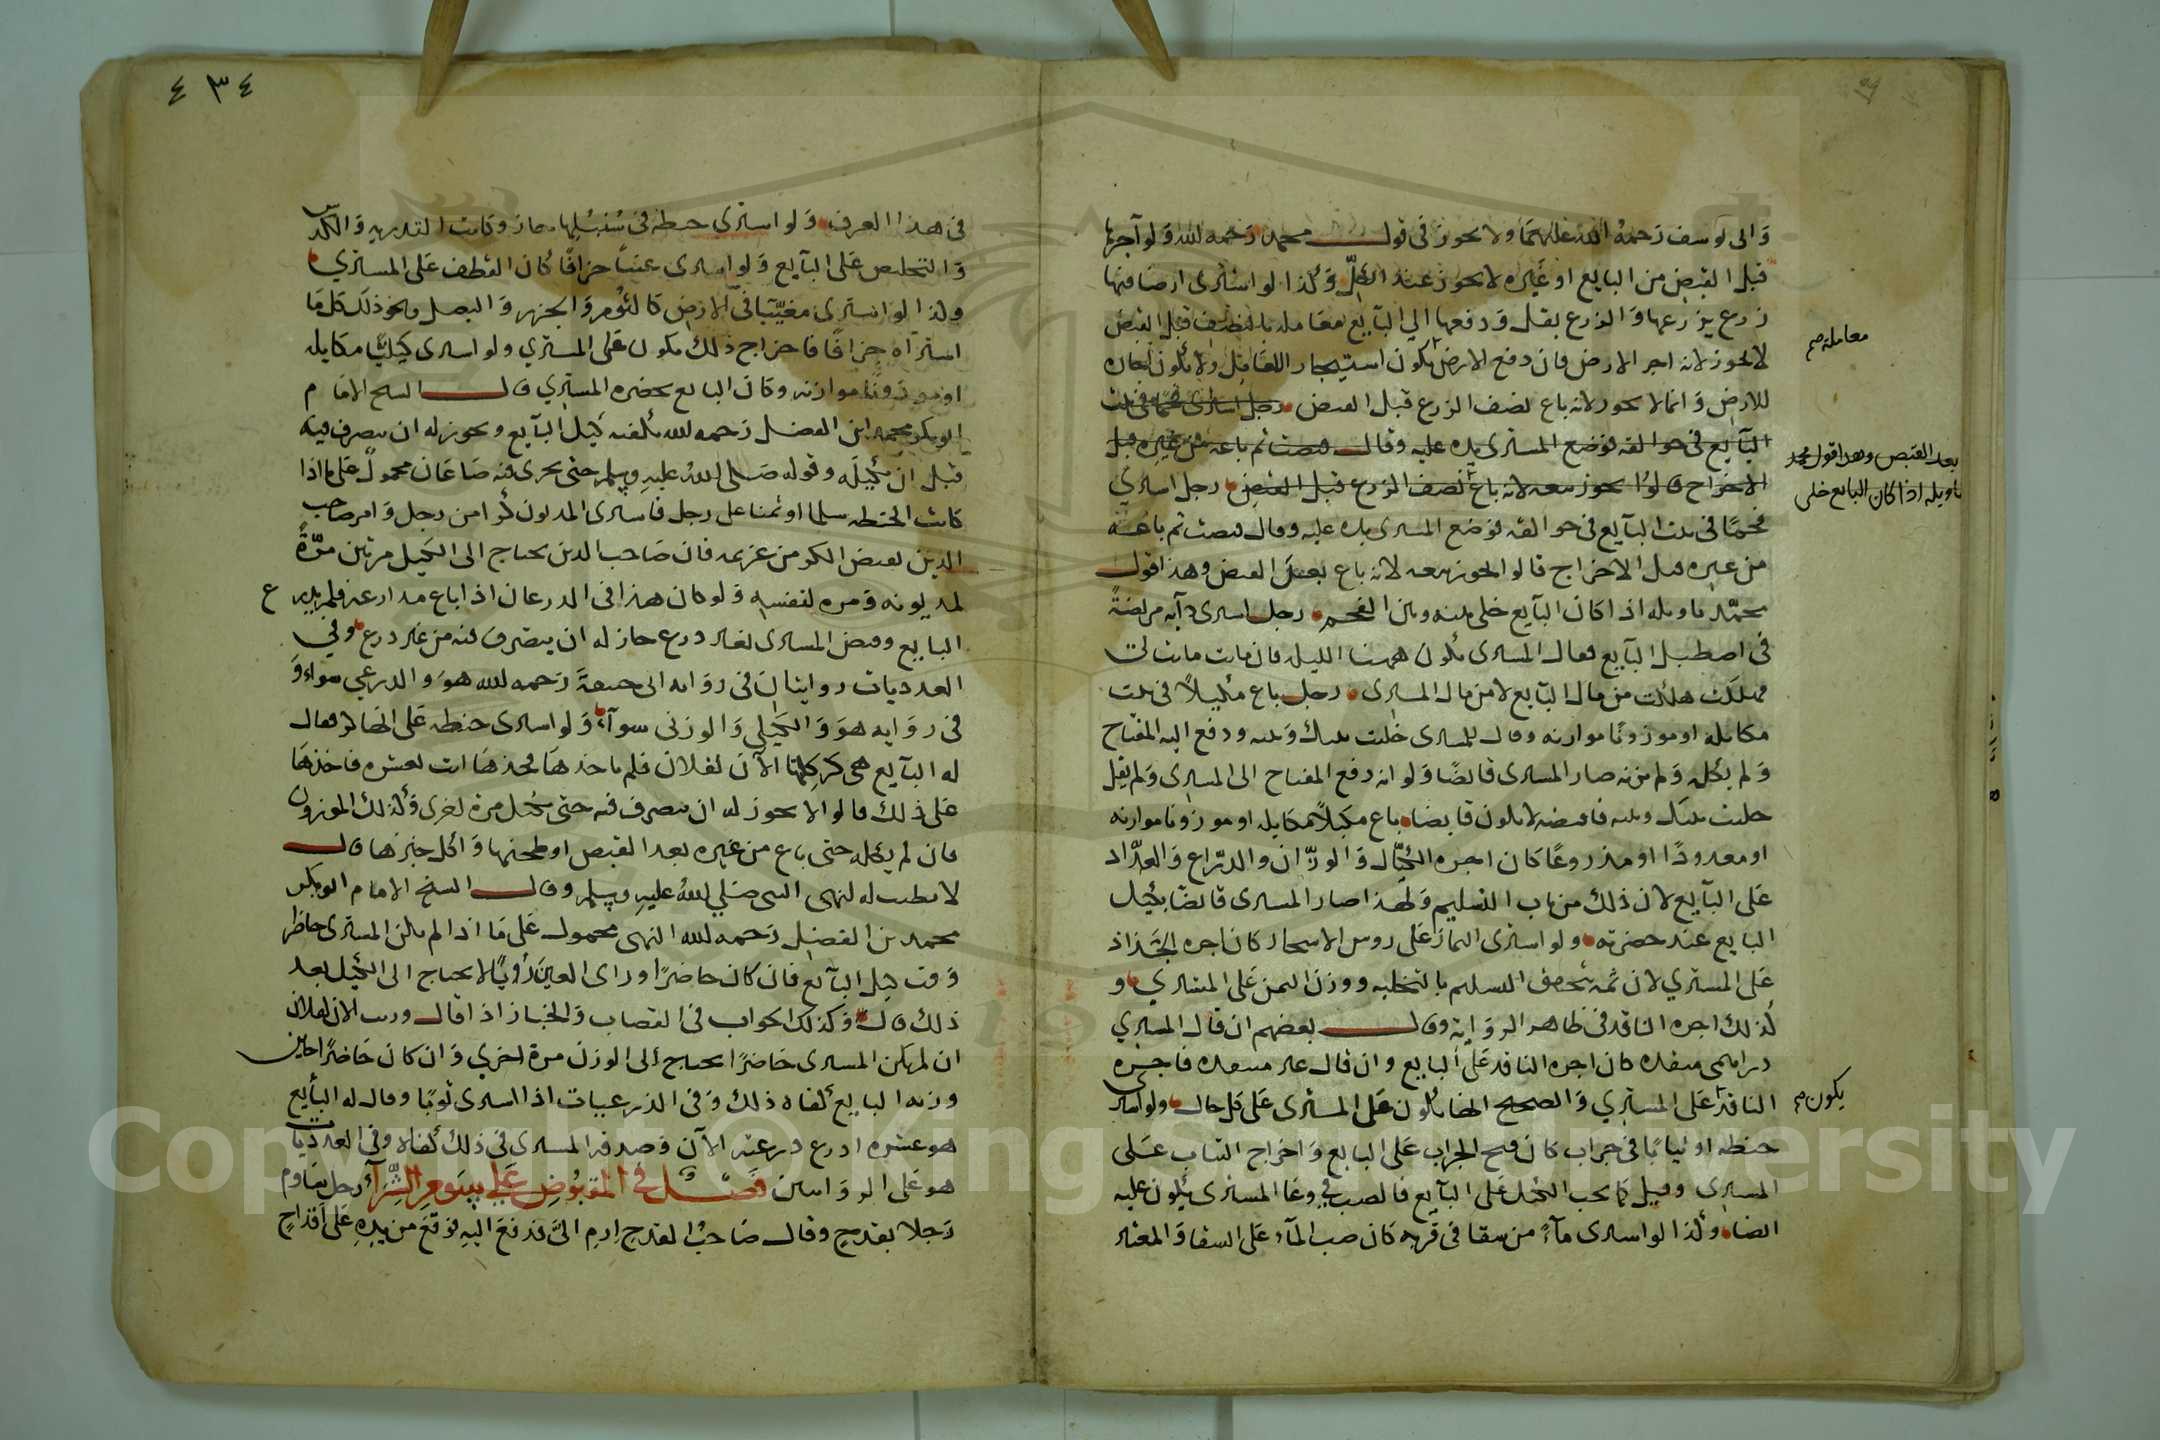 وابى يوسف رحمة الله عليهما ولا يجوز فى قول محمد رحمه الله ولو آجرها
قبل القبض من البايع او غيره لا يجوز عند الكل وكذا لو اشترى ارضا فيها
زرع يزرعها والزرع بقل ودفعها الى البايع معاملة بالنصف قبل القبض
لا يجوز لانه اجر الارض فان دفع الارض يكون استيجار العامل ولا يكون اجارة
معاملة صح
للارض وانما لا يجوز لانه باع نصف الزرع قبل القبض رجل اشترى فحما فى بيت
البآيع فى جوالقه فوضع المشترى يده عليه وقال قبضت ثم باعه من غيره قبل
الاخراج قالوا يجوز بيعه لانه باع نصف الزرع قبل القبض رجل اشترى
بعد القبض وهذا قول محمد
تاويله اذا كان البايع خلى
فحما فى بيت البآيع فى جوالقه فوضع المشترى يده عليه وقال قبضت ثم باعه
من غيره قبل الاخراج قالوا يجوز بيعه لانه باع بعد القبض وهذا قول
محمد تاويله اذا كان البآيع خلى بينه وبين الفحم رجل اشترى دآبة مريضة
فى اصطبل البآيع فقال المشترى يكون ههنا الليلة فان ماتت ماتت لى
فهلكت هلكت من مال البآيع لا من مال المشترى رجل باع مكيلا فى بيت
مكايلة او موزونا موازنة وقال للمشترى خليت بينك وبينه ودفع اليه المفتاح
ولم يكله ولم يزنه صار المشترى قابضا ولو انه دفع المفتاح الى المشترى ولم يقل
خليت بينك وبينه فاقبضه لا يكون قابضا باع مكيلا مكايلة او موزونا موازنة
او معدودا او مذروعا كان اجره الكيال والوزان والذراع والعداد
على البآيع لان ذلك من باب التسليم ولهذا صار المشترى قابضا بكيل
البايع عند حضرته ولو اشترى الثمار على روس الاشجار كان اجره الجذاذ
على المشتري لان ثمه يتحقق التسليم بالتخلية ووزن الثمن على المشتري و
كذلك اجره الناقد فى ظاهر الرواية وقال بعضهم ان قال المشتري
دراهمى منقدة كان اجره الناقد على البايع وان قال غير منقدة فاجره
الناقد على المشتري والصحيح انها يكون على المشترى على كل حال ولو اشترى
يكون صح
حنطة او ثيابا فى جراب كان فتح الجراب على البايع واخراج الثياب على
المشترى وقيل كما يجب الكيل على البآيع فالصب فى وعا المشترى يكون عليه
ايضا وكذا لو اشترى مآء من سقا فى قربه كان صب المآء على السقا والمعتبر
٤٣٤
فى هذا العرف ولو اشترى حنطة فى سنبلها جاز وكانت التذرية والكدس
والتخليص على البآيع ولو اشترى عنبا جزافا كان القطف على المشتري
وكذا لو اشترى مغيبا فى الارض كالثوم والجزر والبصل ونحو ذلك كل ما
اشتراه جزافا فاخراج ذلك يكون على المشتري ولو اشترى كيليا مكايلة
او موزونا موازنة وكان البايع بحضره المشتري قال الشيخ الامام
ابو بكر محمد ابن الفضل رحمه الله يكفيه كيل البآيع ويجوز له ان يتصرف فيه
قبل ان يكيله وقوله صلى الله عليه وسلم حتى يجرى فيه صاعان محمول على ما اذا
كانت الحنطة سلما او ثمنا على رجل فاشترى المديون كرا من رجل وامر صاحب
الدين بقبض الكر من غريمه فان صاحب الدين يحتاج الى الكيل مرتين مرة
لمديونه ومره لنفسه ولو كان هذا فى الذرعان اذا باع مذارعة فلم يذرع
البايع وقبض المشترى بغير ذرع جاز له ان يتصرف فيه من غير ذرع وفي
العدديات روايتان فى رواية ابى حنيفة رحمه الله هو والذرعي سواء و
فى رواية هو والكيلي والوزنى سوآء ولو اشترى حنطة على انها كر فقال
له البآيع هى كر كلتها الآن لفلان فلم ياخذها فخذها انت بعشره فاخذها
على ذلك قالوا لا يجوز له ان يتصرف فيه حتى يكيل مرة اخرى وكذلك الموزون
فان لم يكله حتى باع من غيره بعد القبض او طحنها واكل خبزها قال
لا يطيب له لنهى النبى صلي الله عليه وسلم وقال الشيخ الامام ابو بكر
محمد بن الفضل رحمه الله النهى محمول على ما اذا لم يكن المشترى حاضرا
وقت كيل البآيع فان كان حاضرا وراى العين لا يحتاج الى الكيل بعد
ذلك قال وكذلك الجواب فى القصاب والخباز اذا قال وزنت الان لفلان
ان لم يكن المشترى حاضرا يحتاج الى الوزن مرة اخري وان كان حاضرا حين
وزنه البايع كفاه ذلك وفى الذرعيات اذا اشترى ثوبا وقال له البآيع
هو عشره اذرع ذرعته الآن وصدقه المشترى فى ذلك كفاه وفى العدديات
هو على الروايتين فصل في المقبوض على سوم الشرآء رجل يساوم
رجلا بقدح وقال صاحب القدح ارم الى فدفع اليه فوقع من يده على اقداح